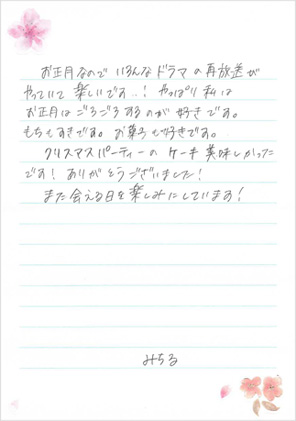 お正月なので いろんなドラマの再放送が
やっていて 楽しいです‥! やっぱり 私は
お正月はごろごろするのが 好きです。
もちもすきです。 お菓子も好きです。
クリスマスパーティーの ケーキ 美味しかった
です! ありがとうございました!
また会える日を楽しみにしています!
みちる